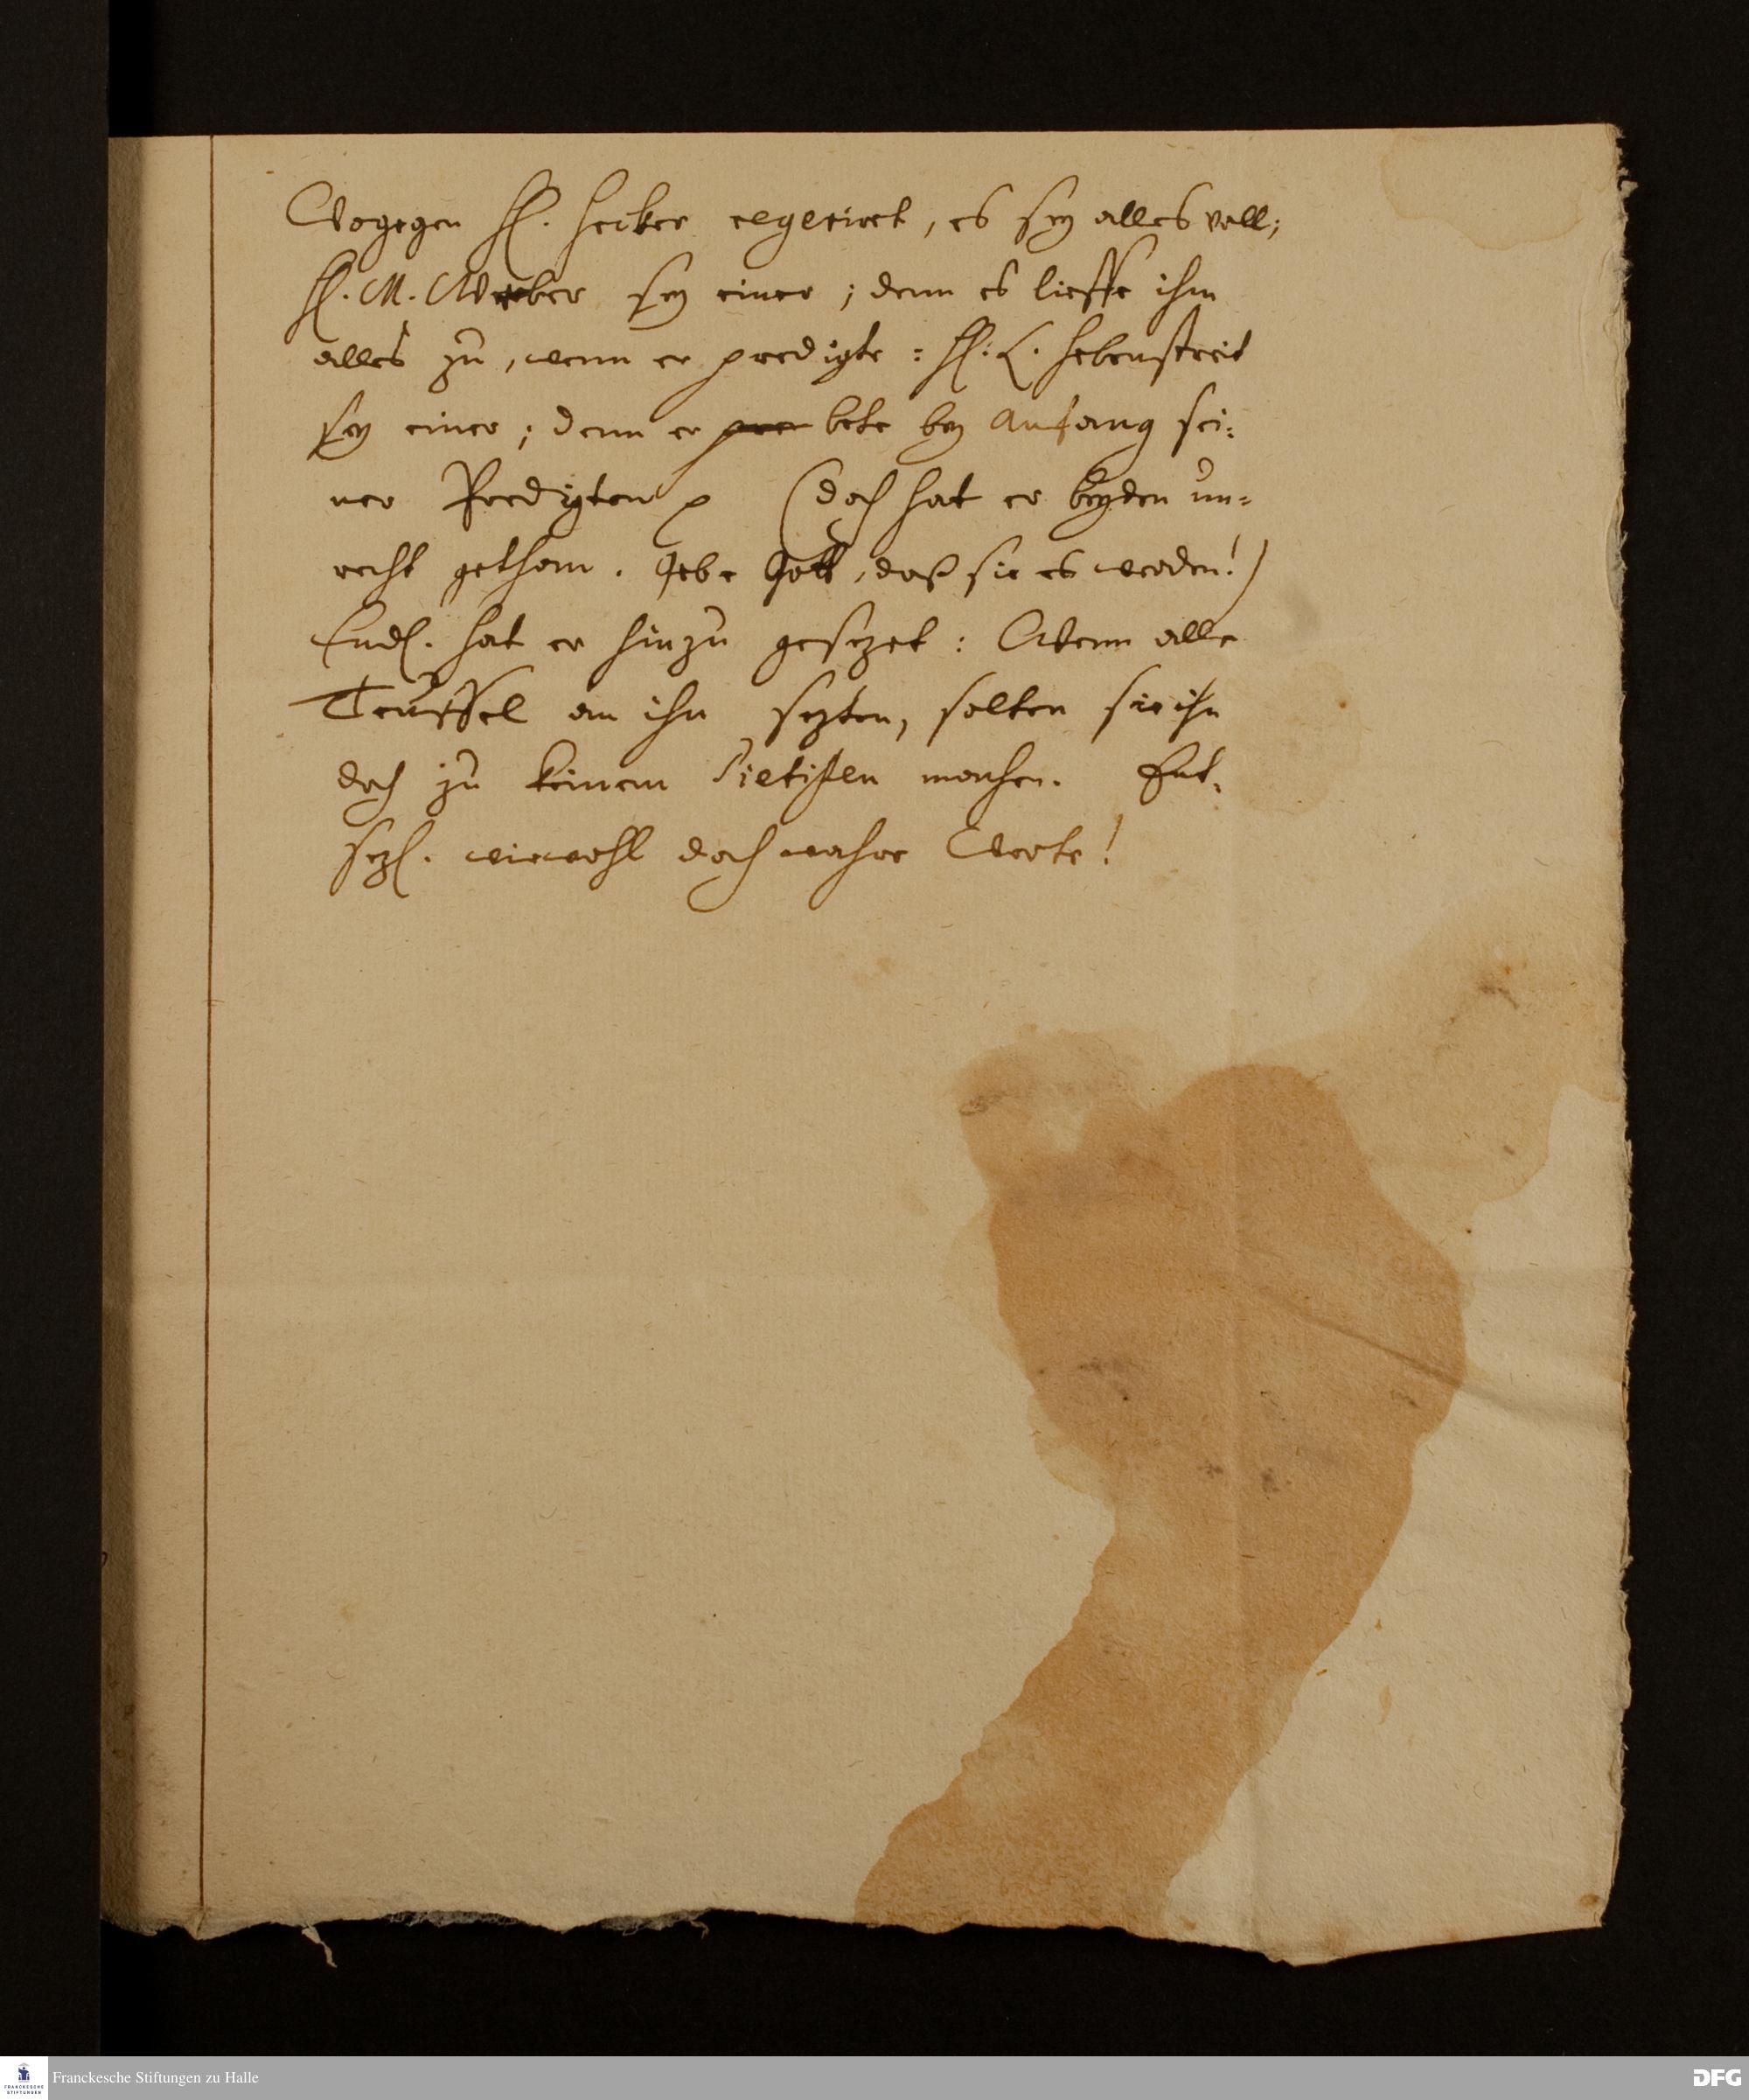 Wogegen H. Hecker regerirt, es sey alles voll;
H. M. Weber sey einer; denn es lieffe ihm
alles zu, wenn er predigte: H. L. Hebenstreit
sey einer; denn er bete bey Anfang sei-
ner Predigten p (doch hat er beyden un-
recht gethan. Gebe Gott, daß sie es werden!)
Endl. hat er hinzu gesezet: Wenn alle
Teuffel an ihn sezten, solten sie ihn
doch zu keinem Pietisten machen. Ent-
sezl. wiewohl doch wahre Worte!
Franckesche Stiftungen zu Halle
FRANCKESCHE STIFTUNGEN
DFG